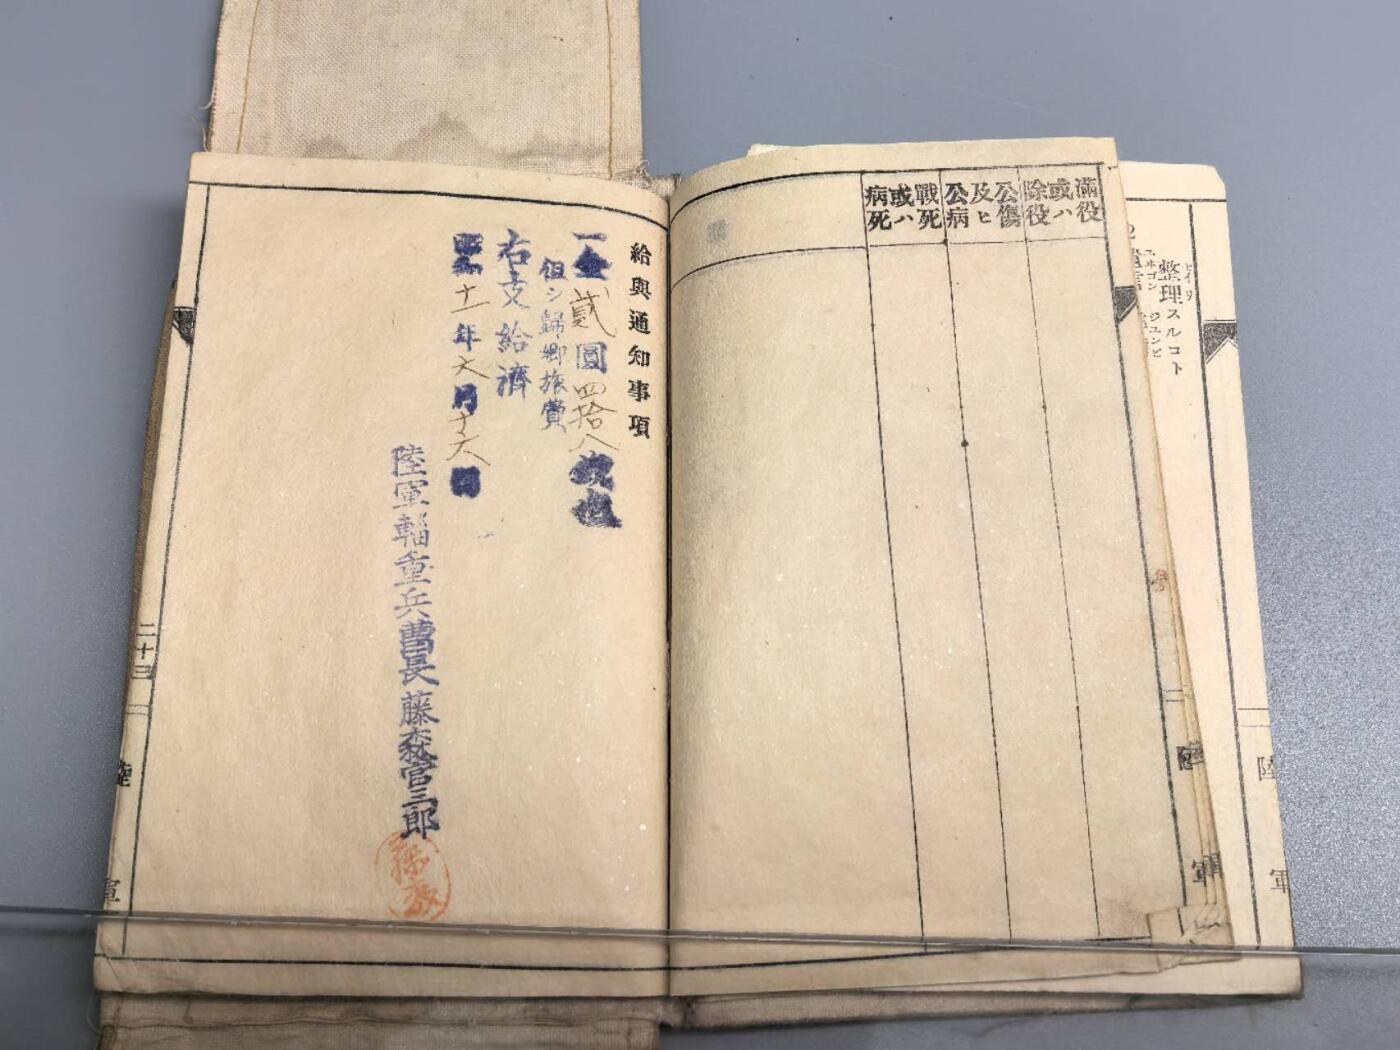 整理スルコト
ヒイヲ
ユヰゴン ジユンビ
滿役
或ハ
除役
公傷
及ヒ
公病
戰死
或ハ
病死
給與通知事項
一金貳圓四拾八銭也
但シ歸郷旅費
右支給濟
昭和十一年六月十六日
陸軍輜重兵曹長藤森官三郎
二十四
陸軍
陸軍
陸軍